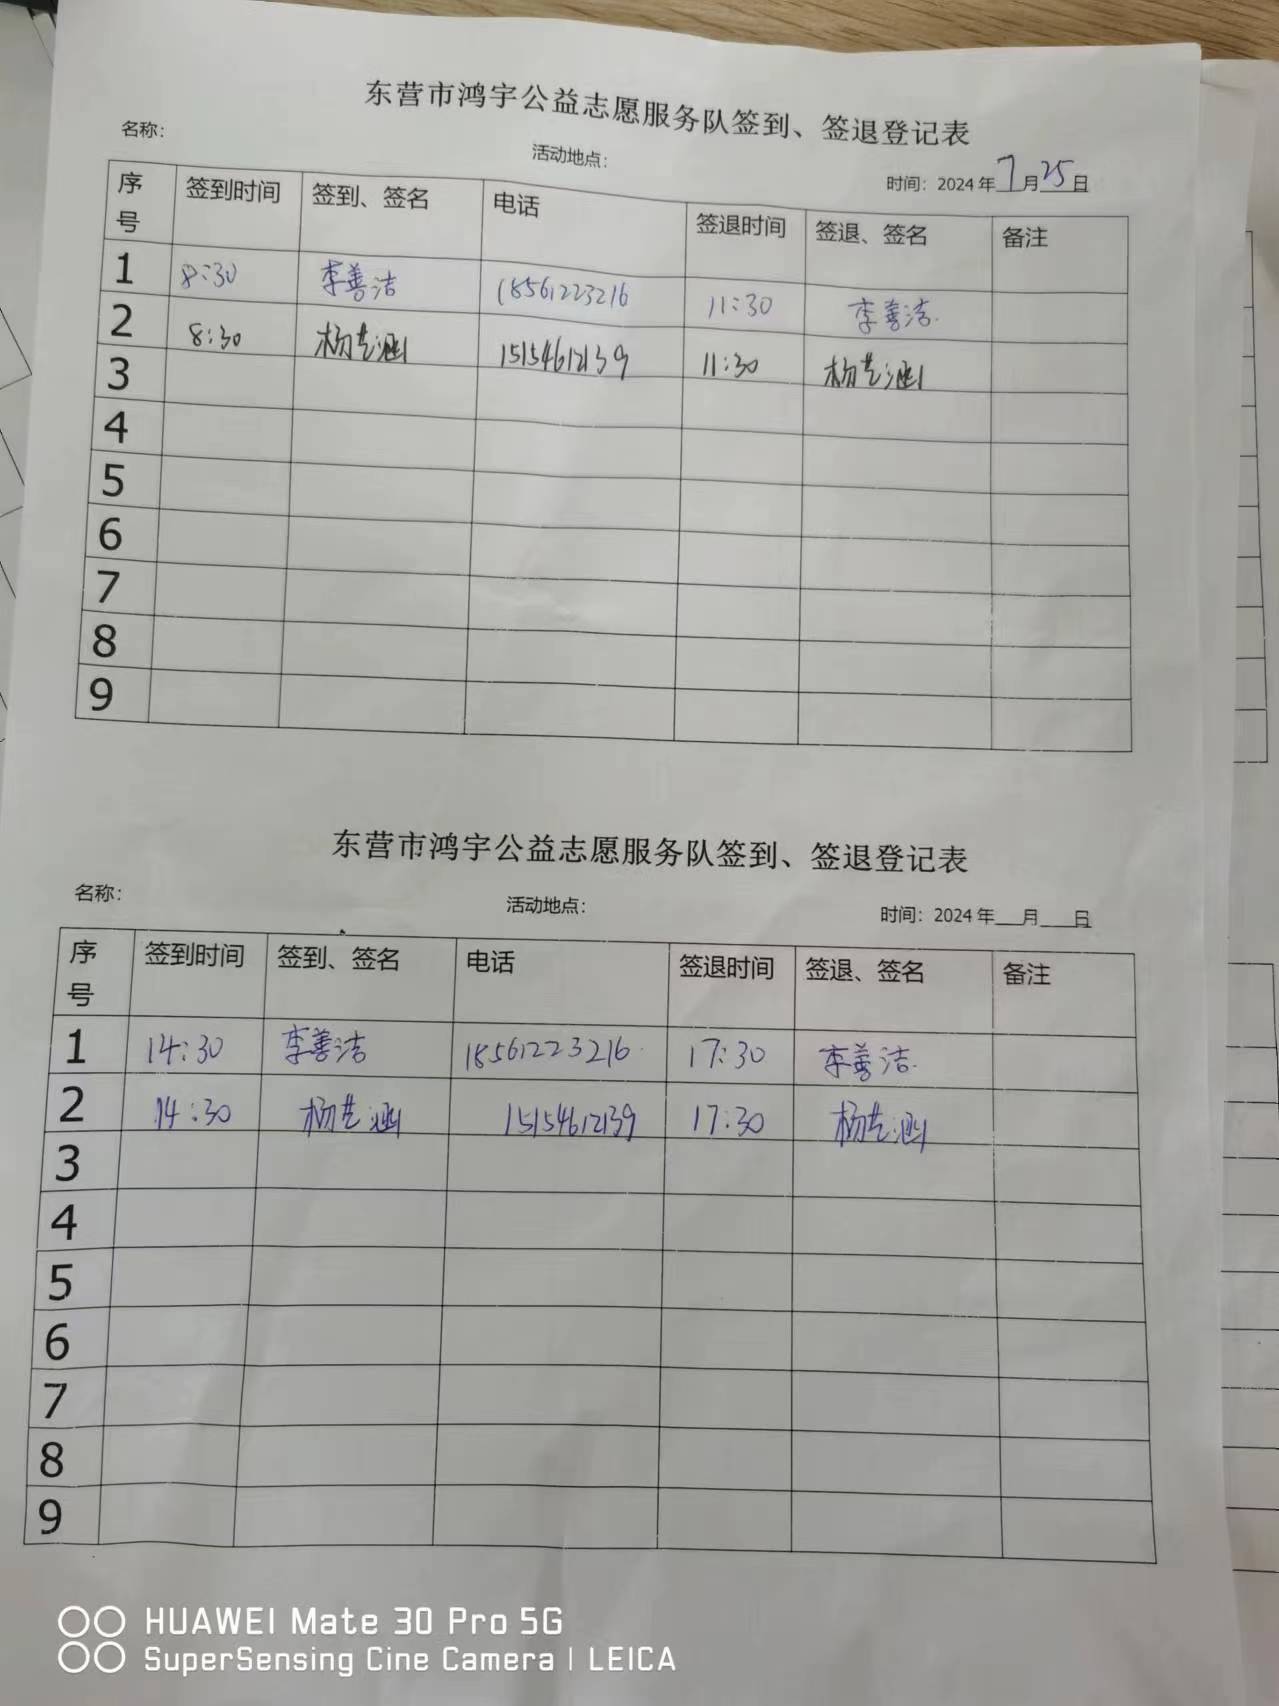 东营市鸿宇公益志愿服务队签到、签退登记表
名称：
活动地点：
时间：2024年7月25日
序号 签到时间 签到、签名 电话 签退时间 签退、签名 备注
1 8:30 李善洁 18561223216 11:30 李善洁
2 8:30 杨艺涵 15154612139 11:30 杨艺涵
3
4
5
6
7
8
9
东营市鸿宇公益志愿服务队签到、签退登记表
名称：
活动地点：
时间：2024年___月___日
序号 签到时间 签到、签名 电话 签退时间 签退、签名 备注
1 14:30 李善洁 18561223216 17:30 李善洁
2 14:30 杨艺涵 15154612139 17:30 杨艺涵
3
4
5
6
7
8
9
HUAWEI Mate 30 Pro 5G
SuperSensing Cine Camera | LEICA